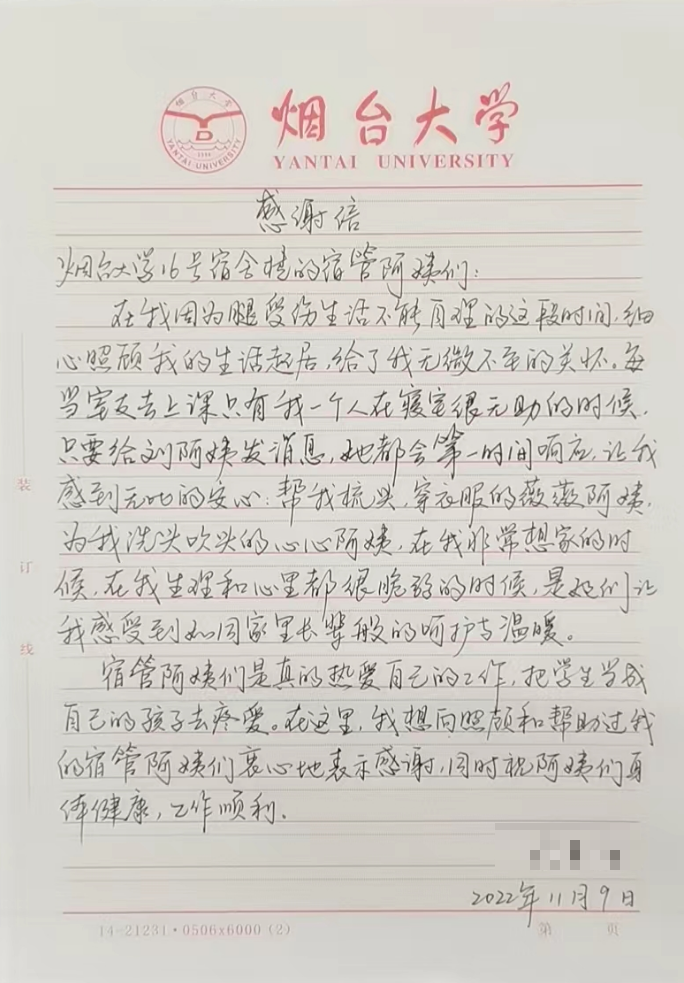 烟台大学
YANTAI UNIVERSITY
烟台大学
YANTAI UNIVERSITY
感谢信
烟台大学16号宿舍楼的宿管阿姨们:
在我因为腿受伤生活不能自理的这段时间,细
心照顾我的生活起居,给了我无微不至的关怀。每
当室友去上课只有我一个人在寝室很无助的时候,
只要给刘阿姨发消息,她都会第一时间响应,让我
感到无比的安心;帮我梳头,穿衣服的薇薇阿姨,
为我洗头吹头的心心阿姨,在我非常想家的时
候,在我生理和心里都很脆弱的时候,是她们让
我感受到如同家里长辈般的呵护与温暖。
宿管阿姨们是真的热爱自己的工作,把学生当成
自己的孩子去疼爱。在这里,我想向照顾和帮助过我
的宿管阿姨们衷心地表示感谢,同时祝阿姨们身
体健康,工作顺利.
2022年11月9日
装
订
线
14-21231·0506x6000(2)
第 页